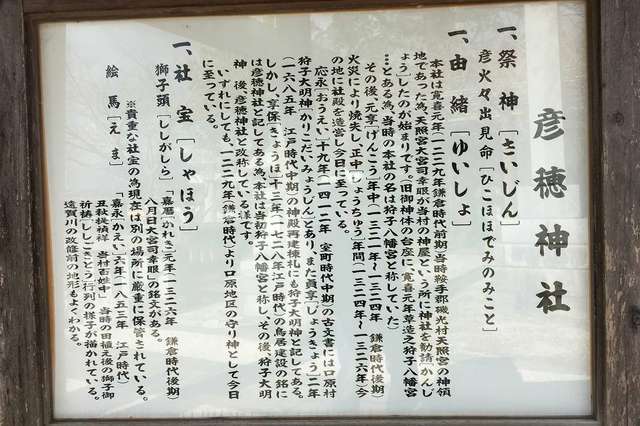 彦穂神社
一、祭神［さいじん］
彦火々出見命［ひこほほでみのみこと］
一、由緒［ゆいしょ］
本社は寛喜元年（一二二九年鎌倉時代前期）当時鞍手郡磯光村天照宮の神領
地であった為、天照宮大宮司幸眼が当村の神屋という所に神社を勧請（かんじ
ょう）したのが始まりです。（旧御神体の台座に「寛喜元年草造之狩子八幡宮
…」とある為、当時の本社の名は狩子八幡宮と称していた）
その後、元享（げんこう）年中（一三二一年～一三二四年 鎌倉時代後期）
火災により焼失し、正中（しょうちゅう）年間（一三二四年～一三二六年）今
の地に社殿を造営し今日に至っている。
応永（おうえい）十九年（一四一二年 室町時代中期）の古文書には口原村
狩子大明神（かりこだいみょうじん）とあり、また貞享（じょうきょう）二年
（一六八五年 江戸時代中期）の神殿再建棟札にも狩子大明神と記してある。
しかし、享保（きょうほ）十三年（一七二八年江戸時代）の鳥居建設の銘に
は彦穂神社と記してある為、本社は当初狩子八幡宮と称し、その後狩子大明
神、後、彦穂神社と改称している様です。
いずれにしても、一二二九年（鎌倉時代）より口原地区の守り神として今日
に至っている。
一、社宝［しゃほう］
獅子頭（ししがしら）「嘉暦（かれき）元年（一三二六年 鎌倉時代後期）
八月日大宮司幸眼」の銘文がある。
※貴重な社宝の為現在は別の場所に厳重に保管されている。
絵馬［えま］「嘉永（かえい）六年（一八五三年 江戸時代）
丑秋提禎祥 当村百姓中」当時の田植え後の獅子御
祈祷（ししごきとう）行列の様子が描かれている。
遠賀川の改修前の地形もよくわかる。